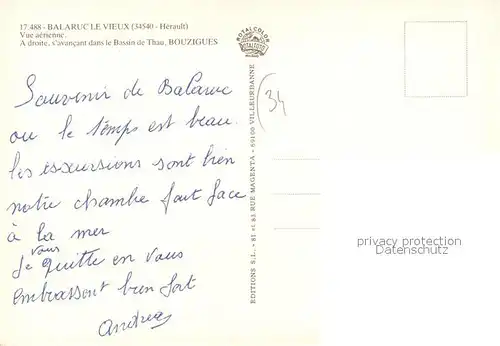 17.488 - BALARUC LE VIEUX (34540 - Hérault)
Vue aérienne.
A droite, s'avançant dans le Bassin de Thau, BOUZIGUES
Souvenir de Balaruc
ou le temps est beau.
les excursions sont bien
notre chambre fait face
à la mer
Je vous quitte en vous
embrassant bien fort
Andrea
34
ROTALCOLOR
ROTALFOTO
EDITIONS S.L. - 81 et 83 RUE MAGENTA - 69100 VILLEURBANNE
privacy protection
Datenschutz